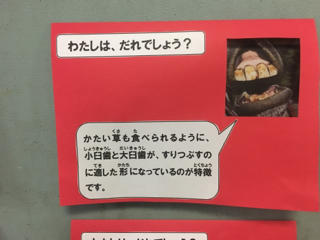 わたしは、だれでしょう？
かたい草も食べられるように、
小臼歯と大臼歯が、すりつぶすの
に適した形になっているのが特徴
です。